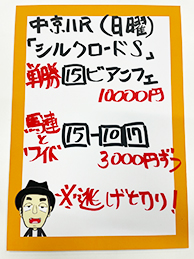 中京11R(日曜)
「シルクロードS」
単勝 15 ビアンフェ
10000円
馬連とワイド 15-10 17
3000円ずつ
※逃げ切り!